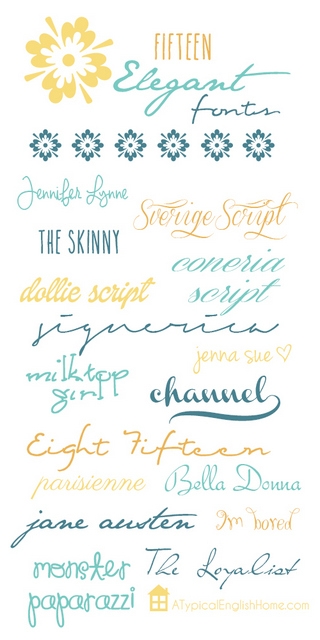 FIFTEEN
Elegant
fonts
Jennifer Lynne
Sverige Script
THE SKINNY
coneria
script
dollie script
signerica
jenna sue
milktop
girl
channel
Eight Fifteen
parisienne
Bella Donna
jane austen
I'm bored
monster
paparazzi
The Loyalist
ATypicalEnglishHome.com